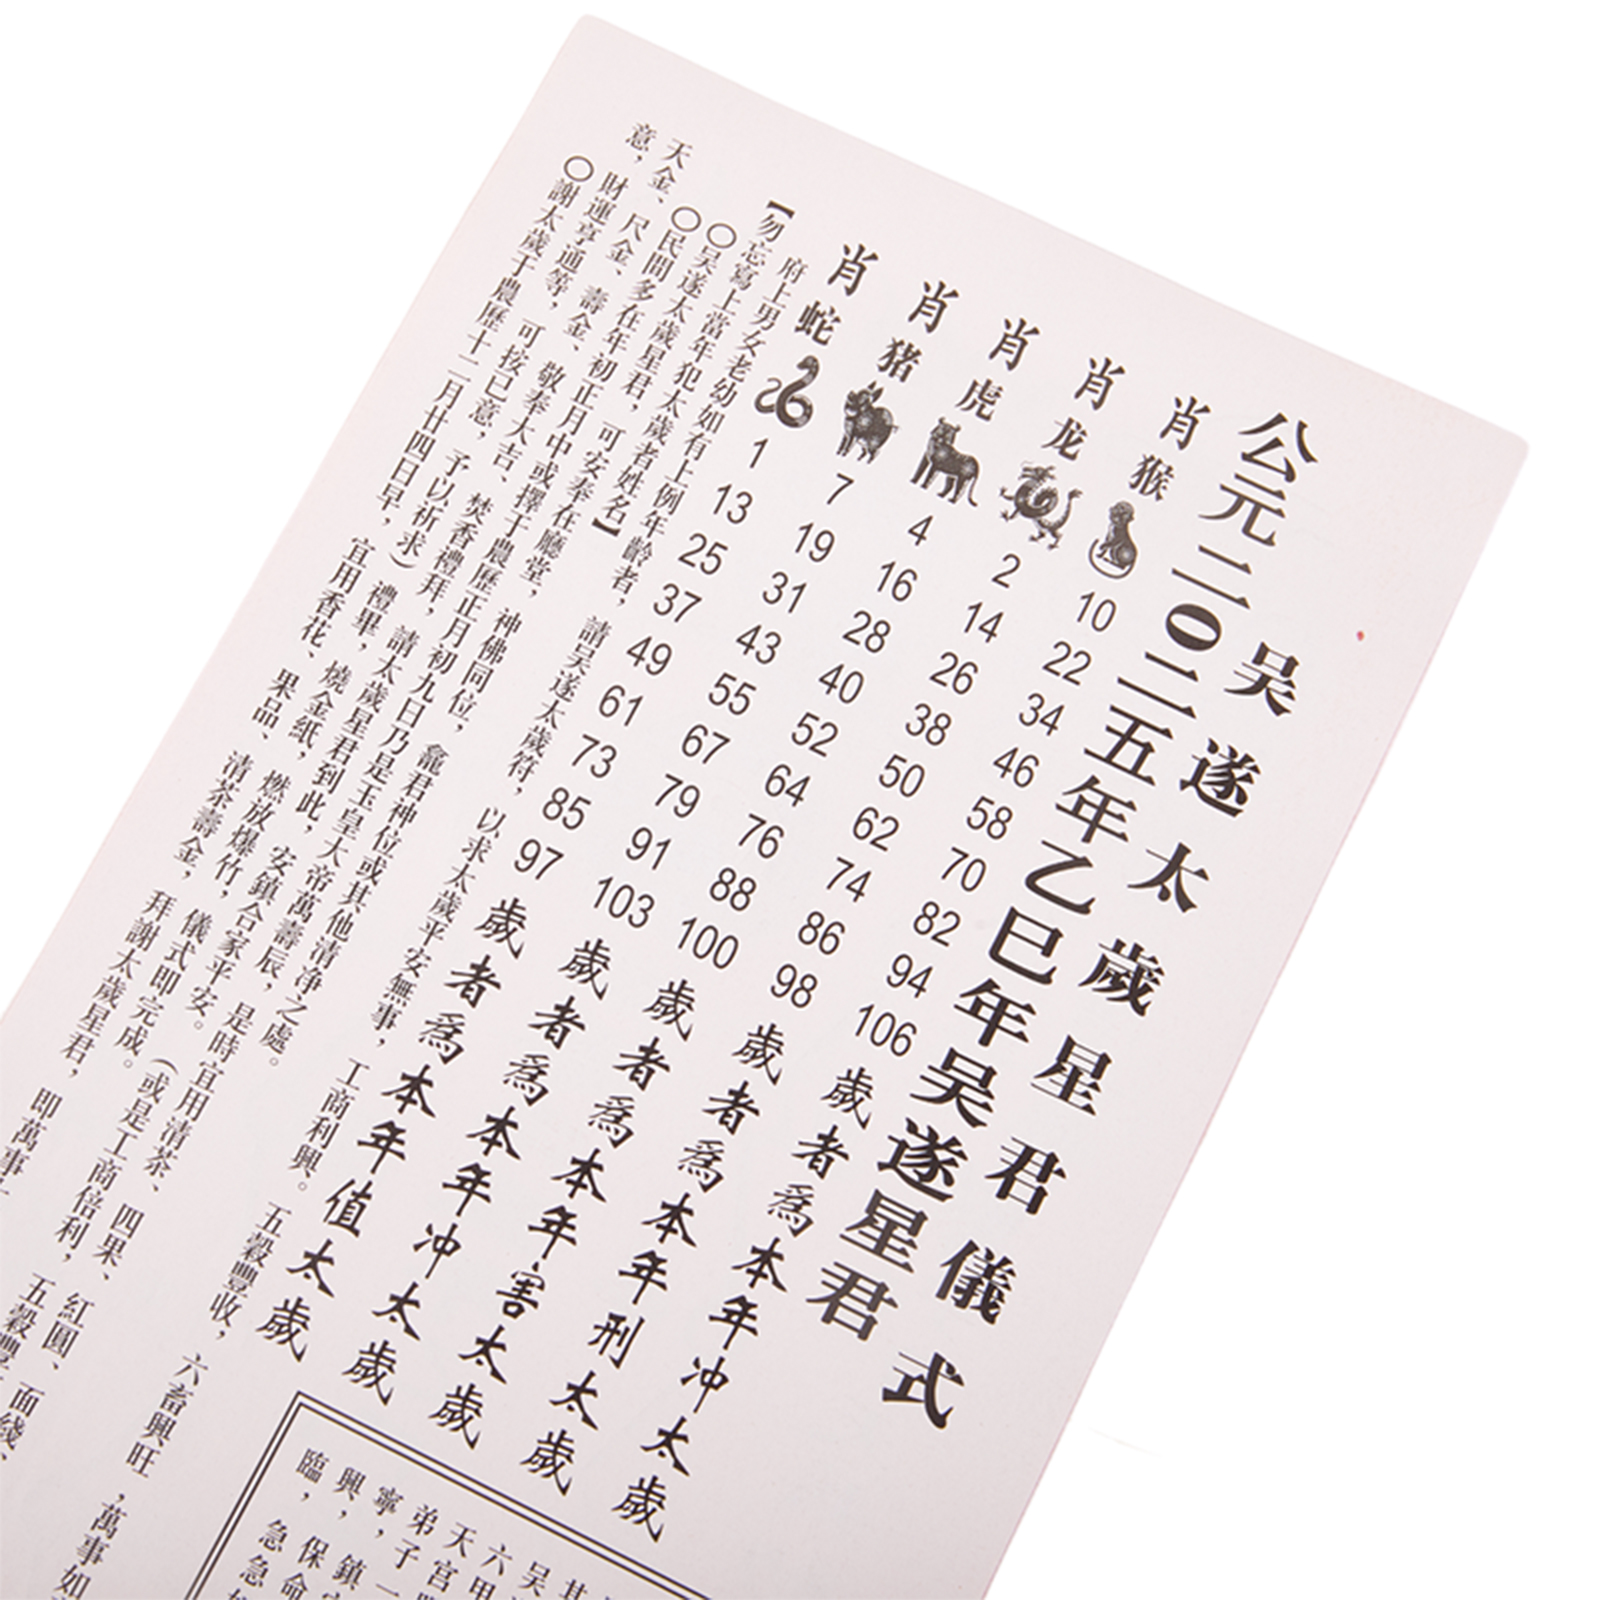 吴遂太歲星君儀式
公元二〇二五年乙巳年吴遂星君
肖猴 10 22 34 46 58 70 82 94 106 歲者爲本年冲太歲
肖龙 2 14 26 38 50 62 74 86 98 歲者爲本年刑太歲
肖虎 4 16 28 40 52 64 76 88 100 歲者爲本年害太歲
肖猪 7 19 31 43 55 67 79 91 103 歲者爲本年冲太歲
肖蛇 1 13 25 37 49 61 73 85 97 歲者爲本年值太歲
府上男女老幼如有上例年齡者，請吴遂太歲符，以求太歲平安無事，工商利興。五穀豐收，六畜興旺，萬事如
【勿忘寫上當年犯太歲者姓名】
〇吴遂太歲星君，可安奉在廳堂，神佛同位，龕君神位或其他清净之處。
〇民間多在年初正月中或擇于農歷正月初九日乃是玉皇大帝萬壽辰，是時宜用清茶、四果、紅圓、面綫、
天金、尺金、壽金、敬奉大吉、焚香禮拜，請太歲星君到此，安鎮合家平安。（或是工商倍利，五穀豐
意，財運亨通等，可按已意，予以祈求）禮畢，燒金紙，燃放爆竹，儀式即完成。
〇謝太歲于農歷十二月廿四日早，宜用香花、果品、清茶壽金，拜謝太歲星君，即萬事
其
吴
六甲
天宫
弟子一
寧，
興，鎮
臨，保命
急急